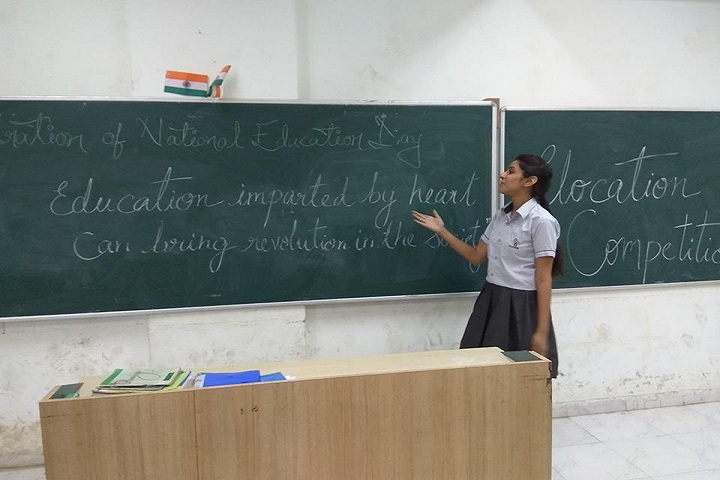 ration of National Education Day
Education imparted by heart
Can bring revolution in the society"
Elocation
Competitio